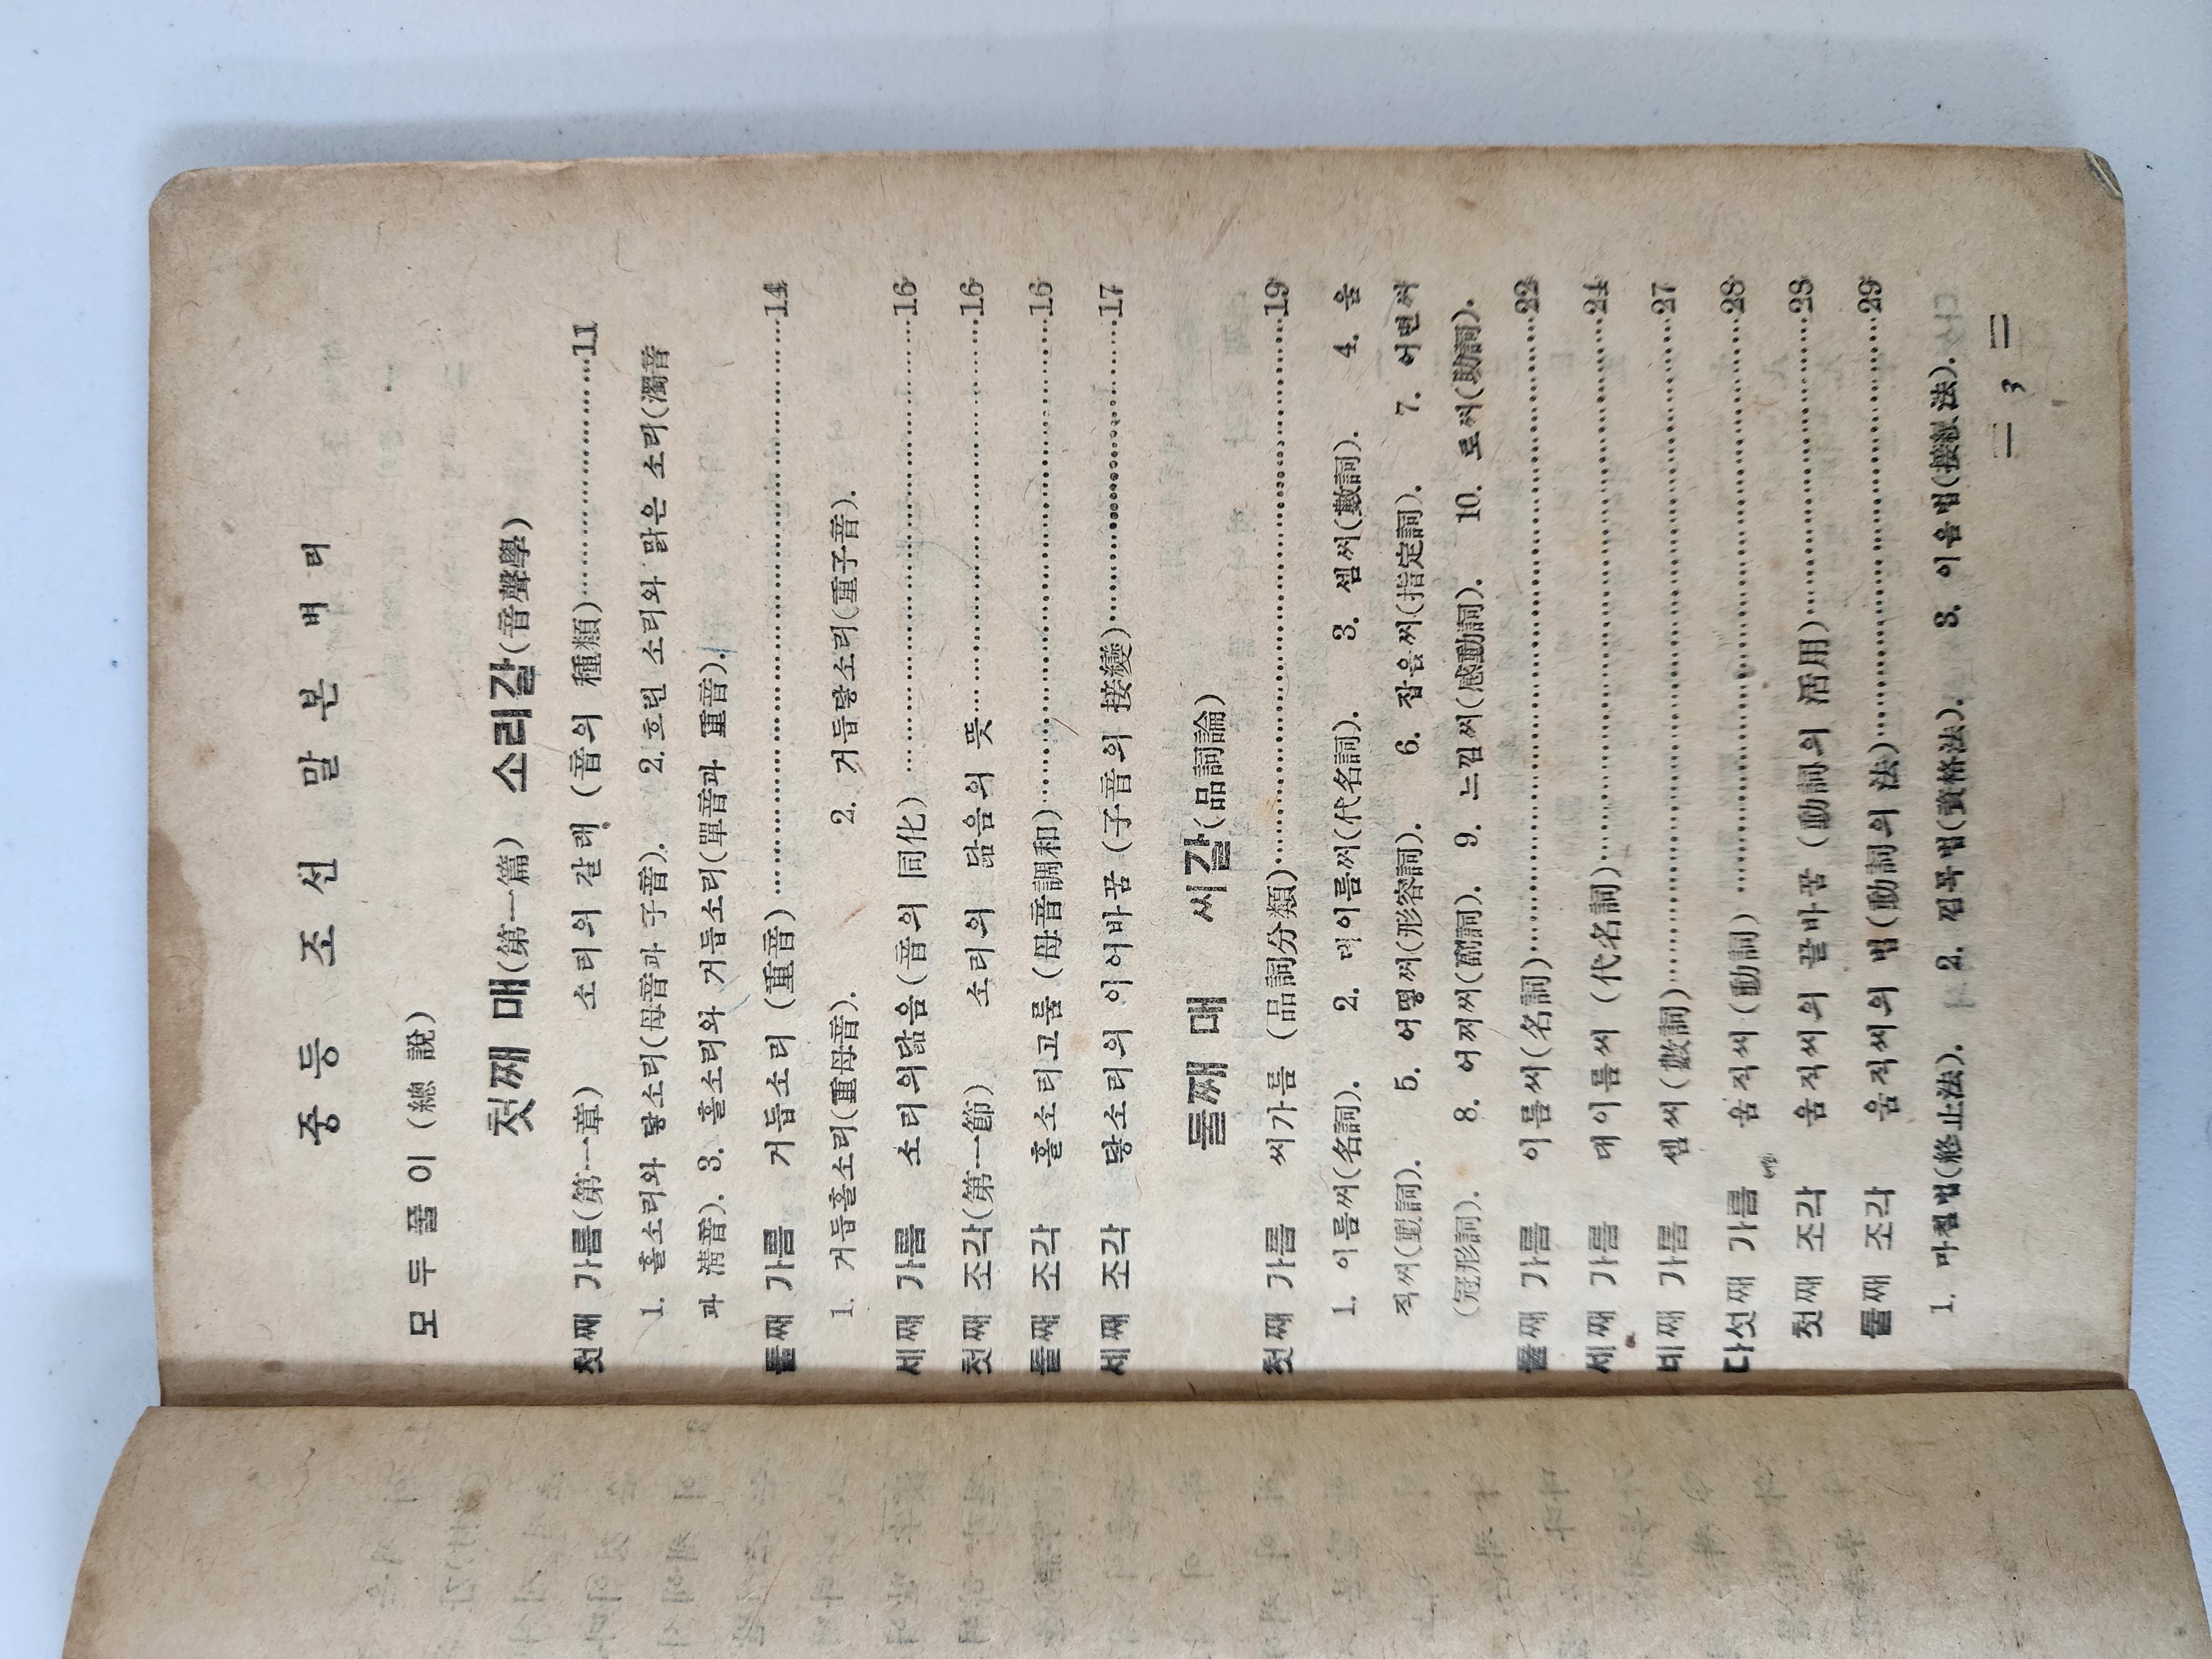 중 등 조 선 말 본 벼 리
모 두 풀 이 (總 說)
첫째 매(第一篇) 소리갈(音聲學)
첫째 가름(第一章) 소리의 갈래 (音의 種類)……………………11
1. 홀소리와 닿소리(母音과 子音). 2. 흐린 소리와 맑은 소리(濁音
과 淸音). 3. 홑소리와 거듭소리(單音과 重音).
둘째 가름 거듭소리 (重音)……………………14
1. 거듭홀소리(重母音). 2. 거듭닿소리(重子音).
세째 가름 소리의닮음(音의 同化)……………………16
첫째 조각(第一節) 소리의 닮음의 뜻……………………16
둘째 조각 홀소리고룸 (母音調和)……………………16
세째 조각 닿소리의 이어바꿈 (子音의 接變)……………………17
둘째 매 씨갈(品詞論)
첫째 가름 씨가름 (品詞分類)……………………19
1. 이름씨(名詞). 2. 대이름씨(代名詞). 3. 셈씨(數詞). 4. 움
직씨(動詞). 5. 어떻씨(形容詞). 6. 잡음씨(指定詞). 7. 어떤씨
(冠形詞). 8. 어찌씨(副詞). 9. 느낌씨(感動詞). 10. 토씨(助詞).
둘째 가름 이름씨(名詞)……………………22
세째 가름 대이름씨 (代名詞)……………………24
네째 가름 셈씨 (數詞)……………………27
다섯째 가름 움직씨 (動詞)……………………28
첫째 조각 움직씨의 끝바꿈 (動詞의 活用)……………………28
둘째 조각 움직씨의 법(動詞의 法)……………………29
1. 마침법(終止法). 2. 껌목법(資格法). 3. 이음법(接續法).
= 3 =